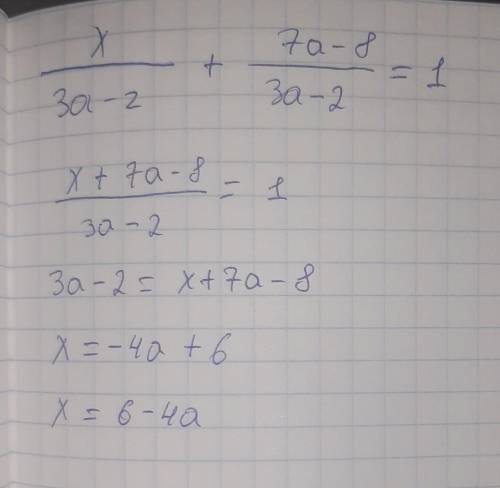 x/(3a-2) + (7a-8)/(3a-2) = 1
(x+7a-8)/(3a-2) = 1
3a-2 = x+7a-8
x = -4a + 6
x = 6-4a